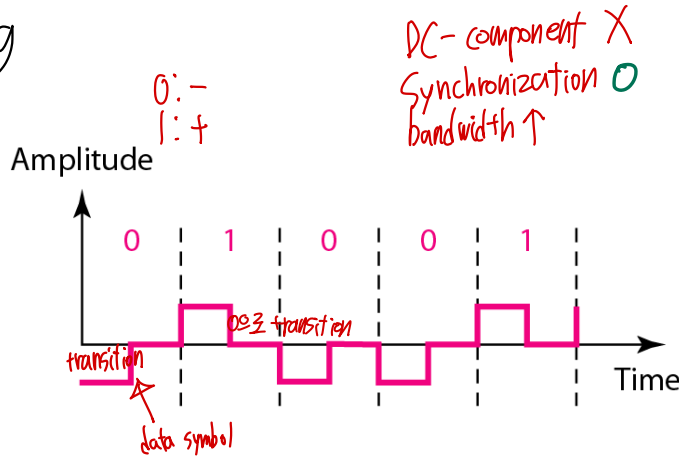 g
DC-component X
Synchronization O
bandwidth ↑
0: -
1: +
Amplitude
0 1 0 0 1
0으로 transition
transition
Time
data symbol